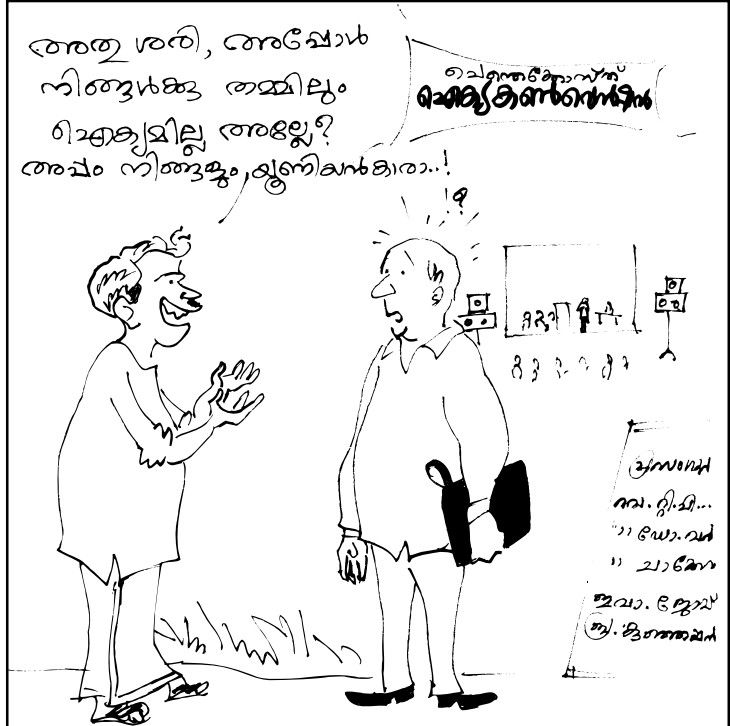 അതു ശരി, അപ്പോൾ
നിങ്ങൾക്കു തമ്മിലും
ഐക്യമില്ല അല്ലേ?
അപ്പം നിങ്ങളും, യൂണിയൻകാരാ..!
പെന്തെക്കോസ്ത്
ഐക്യകൺവെൻഷൻ
!?
പ്രസംഗം
പാ. റ്റി. പി...
'' ഡോ. വൻ
'' ചാക്കോ
ഇവാ. ജോയ്
ബ്ര. കുഞ്ഞപ്പൻ